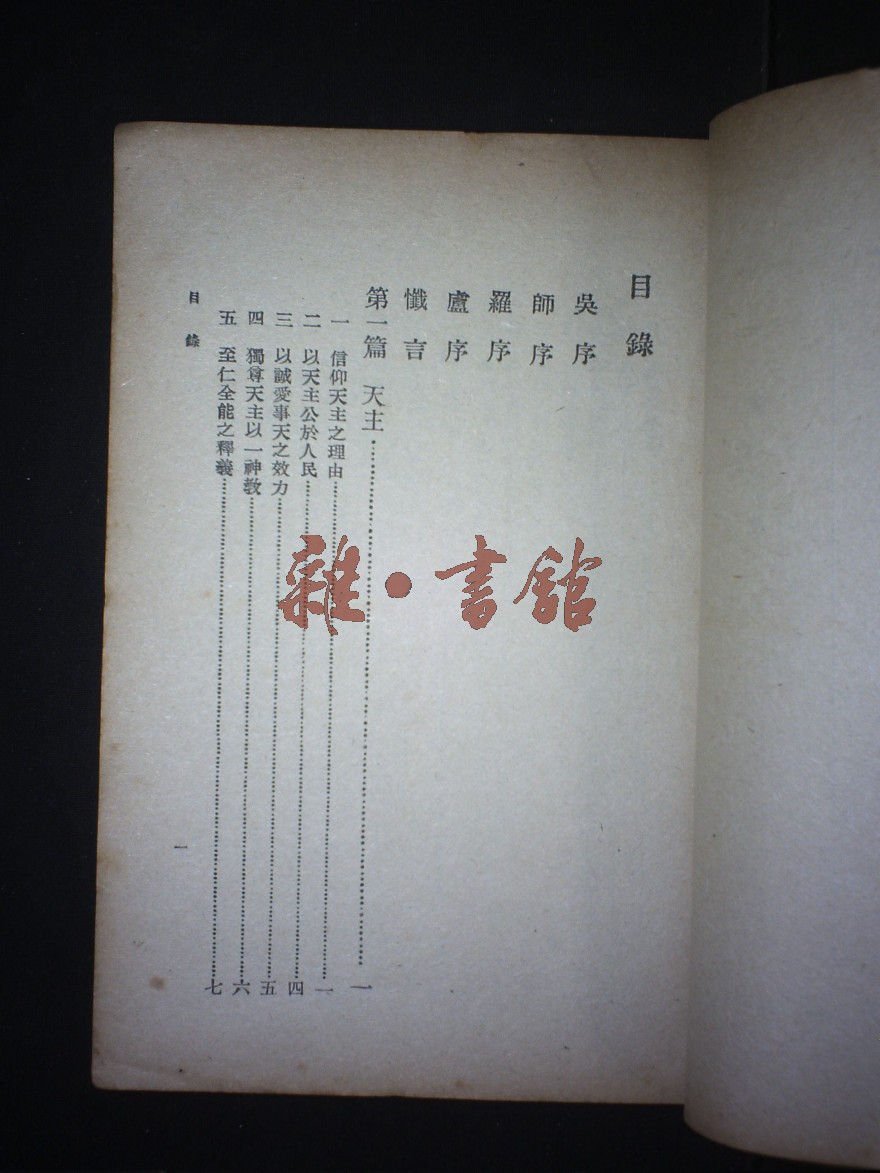 目錄
吳序
師序
羅序
盧序
懺言
第一篇 天主……一
一 信仰天主之理由……一
二 以天主公於人民……四
三 以誠愛事天之效力……五
四 獨尊天主以一神教……六
五 至仁全能之釋義……七
目錄
一
雜·書館